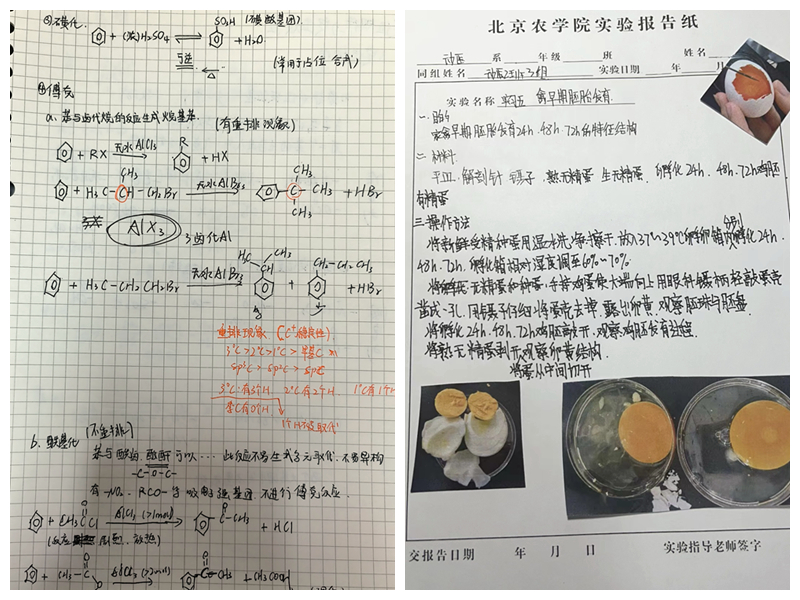 ④磺化
+ (浓)H₂SO₄ ⇌ SO₃H (磺酸基团) + H₂O
可逆 (常用于占位合成)
⑤傅克
a. 苯与卤代烷的反应生成烷基苯 (有重排现象)
+ RX 无水AlCl₃ → R + HX
+ H₃C-CH-CH₂Br 无水AlBr₃ → C-CH₃ + HBr
CH₃ CH₃ CH₃
AlX₃ 卤化Al
+ H₃C-CH₂CH₂Br 无水AlBr₃ → CH CH₃ CH₃ + CH₂-CH₂-CH₃ + HBr
重排现象 (C⁺稳定性)
3°C>2°C>1°C>
sp³C > sp²C > spC
3°C:有3个H 2°C有2个H 1°C有1个H
季C有0个H
1个H被取代
b. 酰基化 (不重排)
苯与酰卤、酸酐可以… 此反应不易生成多元取代、不易异构
-C-O-C-
有-NO₂、RCO-等吸电子基团不进行傅克反应
+ CH₃CCl AlCl₃(>1mol) → C-CH₃ + HCl
O O
+ CH₃-C AlCl₃(>2mol) → C-CH₃ + CH₃COOH
北京农学院实验报告纸
动医 系 年级 班 姓名
同组姓名 实验日期 年 月
实验名称 实习五 禽早期胚胎发育
一.目的
家禽早期胚胎发育24h、48h、72h的特征结构
二.材料
平皿、解剖针 镊子、熟无精蛋 生无精蛋、孵化24h、48h、72h鸡胚
有精蛋
三.操作方法
分别
将新鲜受精种蛋用温水洗净擦干,放入37~39℃孵卵箱内孵化24h、
48h、72h、孵化箱相对湿度调至60%~70%
将无精蛋和种蛋,手持鸡蛋使大端向上用眼科镊柄轻敲蛋壳
凿成一孔,用镊子仔细将蛋壳去掉,露出卵黄,观察胚珠与胚盘
将孵化24h、48h、72h鸡胚敲开,观察鸡胚发育过程
将熟无精蛋剥开,观察卵黄结构
将蛋从中间切开
交报告日期 年 月 日 实验指导老师签字